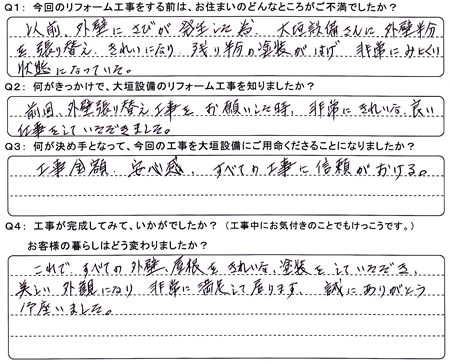 Q1: 今回のリフォーム工事をする前は、お住まいのどんなところがご不満でしたか?
以前、外壁にさびが発生した為、大垣設備さんに外壁半分
を張り替え、きれいになり、残り半分の塗装がはげ非常にみにくい
状態になっていた。
Q2: 何がきっかけで、大垣設備のリフォーム工事を知りましたか?
前回、外壁張り替え工事をお願いした時、非常にきれいな、良い
仕事をしていただきました。
Q3: 何が決め手となって、今回の工事を大垣設備にご用命くださることになりましたか?
工事金額、安心感、すべての工事に信頼がおける。
Q4: 工事が完成してみて、いかがでしたか? (工事中にお気付きのことでもけっこうです。)
お客様の暮らしはどう変わりましたか?
これで、すべての外壁、屋根をきれいな、塗装をしていただき、
美しい外観になり非常に満足して居ります、誠にありがとう
御座いました。